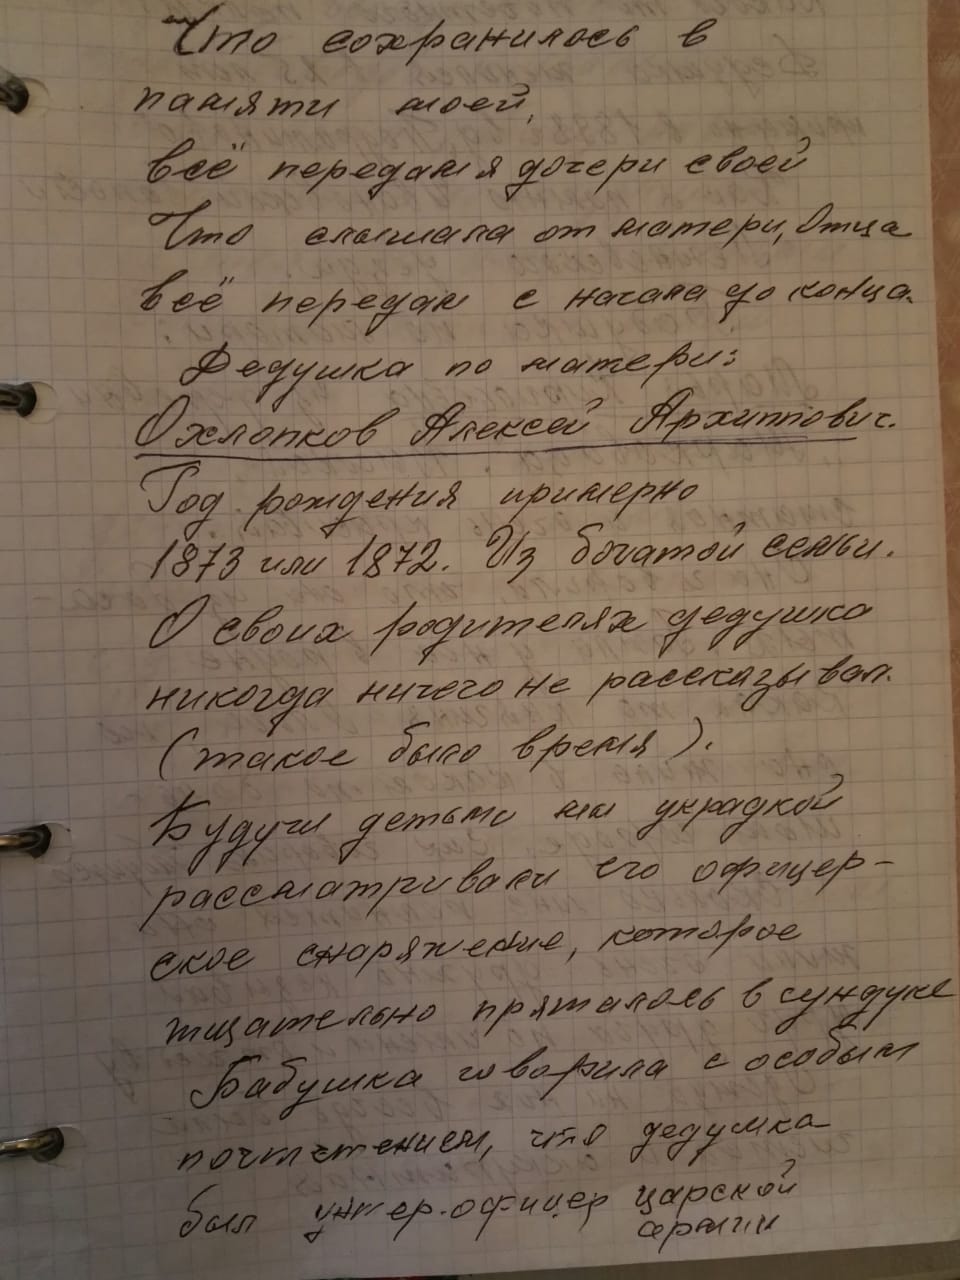 Что сохранилось в
памяти моей,
всё передам я дочери своей
Что слышала от матери, отца
всё передам с начала до конца.
Дедушка по матери:
Охлопков Алексей Архиппович.
Год рождения примерно
1873 или 1872. Из богатой семьи.
О своих родителях дедушка
никогда ничего не рассказывал.
(такое было время).
Будучи детьми мы украдкой
рассматривали его офицер-
ское снаряжение, которое
тщательно пряталось в сундуке
Бабушка говорила с особым
почтением, что дедушка
был унтер-офицер царской
армии